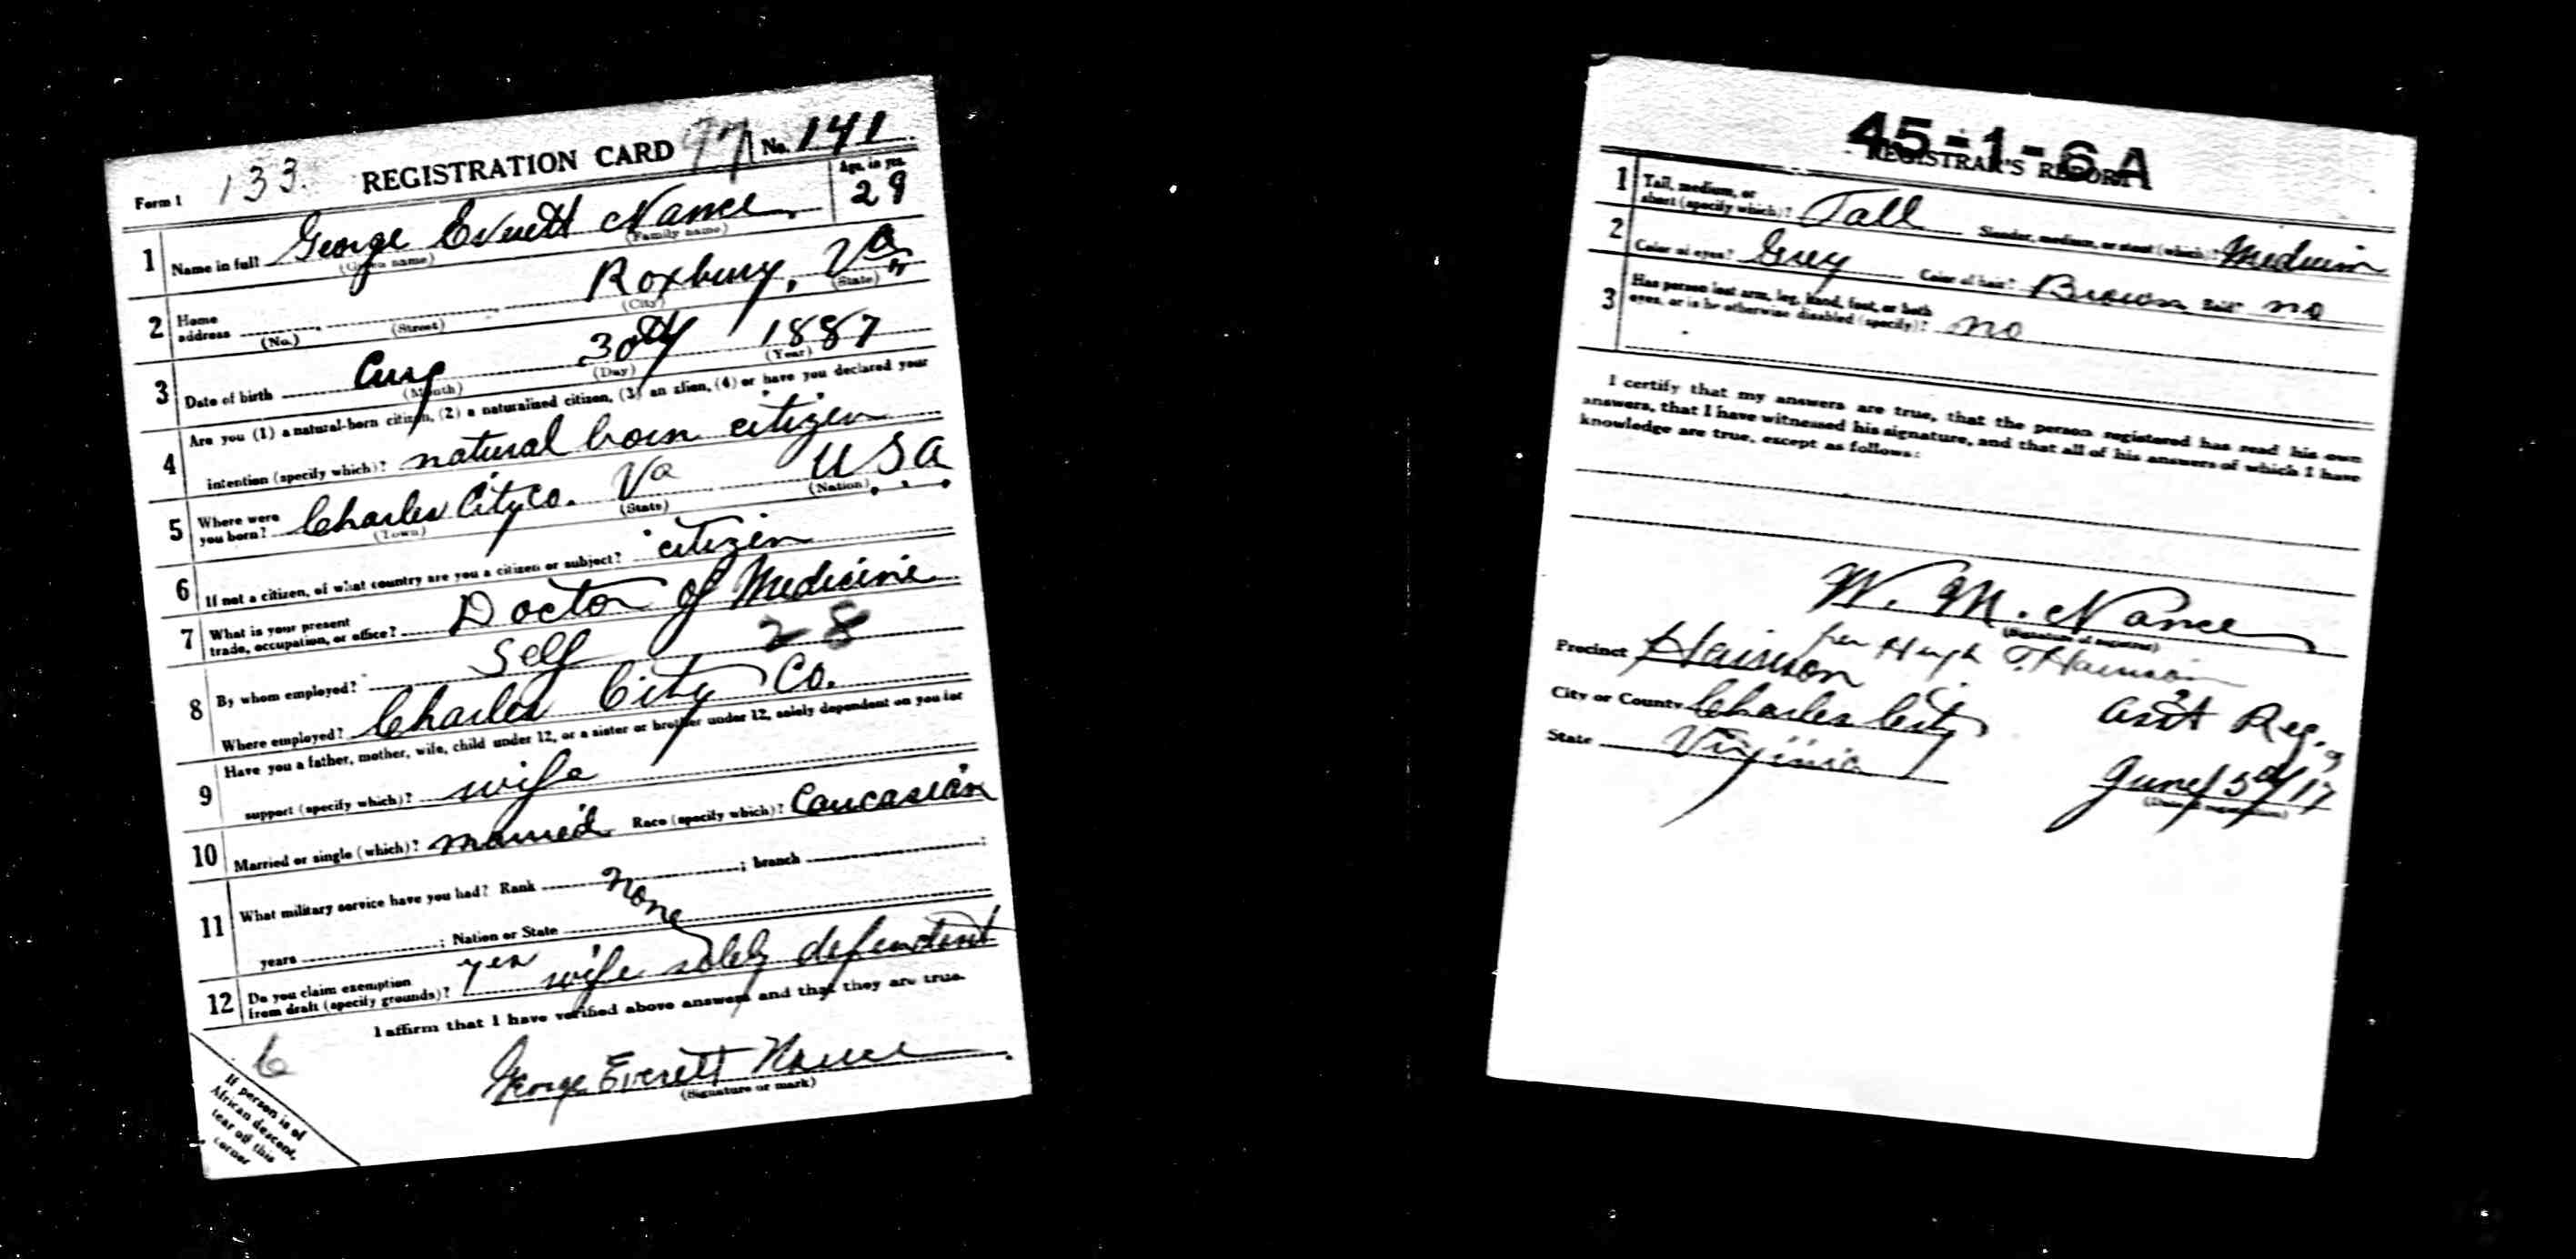 Form 1 133. REGISTRATION CARD No. 141
1 Name in full George Everett Nance Age, in yrs. 29
(Given name) (Family name)
2 Home address Roxbury, Va
(No.) (Street) (City) (State)
3 Date of birth Aug 30th 1887
(Month) (Day) (Year)
4 Are you (1) a natural-born citizen, (2) a naturalized citizen, (3) an alien, (4) or have you declared your
intention (specify which)? natural born citizen
5 Where were you born? Charles City Co. Va USA
(Town) (State) (Nation)
6 If not a citizen, of what country are you a citizen or subject? citizen
7 What is your present trade, occupation, or office? Doctor of Medicine
8 By whom employed? Self 28
Where employed? Charles City Co.
9 Have you a father, mother, wife, child under 12, or a sister or brother under 12, solely dependent on you for
support (specify which)? wife
10 Married or single (which)? married Race (specify which)? Caucasian
11 What military service have you had? Rank none ; branch ;
years ; Nation or State
12 Do you claim exemption from draft (specify grounds)? yes wife solely dependent
I affirm that I have verified above answers and that they are true.
George Everett Nance
(Signature or mark)
6
If person is of
African descent,
tear off this
corner
45-1-6 A
REGISTRAR'S REPORT
1 Tall, medium, or short (specify which)? Tall Slender, medium, or stout (which)? Medium
2 Color of eyes? Grey Color of hair? Brown Bald? no
3 Has person lost arm, leg, hand, foot, or both
eyes, or is he otherwise disabled (specify)? no
I certify that my answers are true, that the person registered has read his own
answers, that I have witnessed his signature, and that all of his answers of which I have
knowledge are true, except as follows:
W. M. Nance
(Signature of registrar)
per Hugh T. Harrison
Precinct Harrison Asst Reg.
City or County Charles City
State Virginia June 5th/17
(Date of registration)